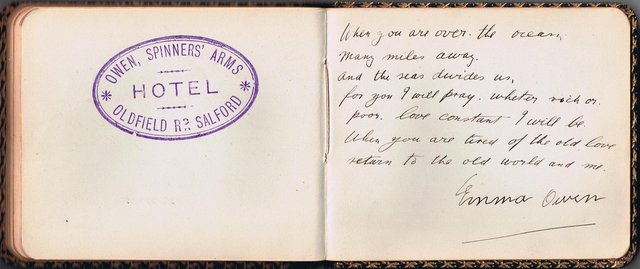 OWEN, SPINNERS' ARMS
HOTEL
OLDFIELD RD SALFORD
When you are over the ocean,
many miles away.
and the seas divides us,
for you I will pray. wheter rich or.
poor. love constant I will be.
When you are tired of the old love
return to the old world and me.
Emma Owen